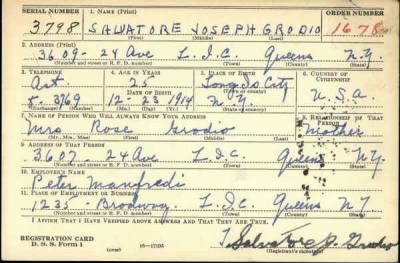 SERIAL NUMBER 1. NAME (Print) ORDER NUMBER
3798 SALVATORE JOSEPH GRODIO 1678
(First) (Middle) (Last)
2. ADDRESS (Print)
3609 - 24 Ave L.I.C. Queens N.Y.
(Number and street or R. F. D. number) (Town) (County) (State)
3. TELEPHONE 4. AGE IN YEARS 5. PLACE OF BIRTH 6. COUNTRY OF CITIZENSHIP
Ast. 25 Long Is City
DATE OF BIRTH (Town or county)
8-3769 12-23 1914 N.Y. U.S.A.
(Exchange) (No.) (Mo.) (Day) (Yr.) (State or country)
7. NAME OF PERSON WHO WILL ALWAYS KNOW YOUR ADDRESS 8. RELATIONSHIP OF THAT PERSON
Mrs Rose Grodio Mother
(Mr., Mrs., Miss) (First) (Middle) (Last)
9. ADDRESS OF THAT PERSON
3609 - 24 Ave L.I.C. Queens N.Y.
(Number and street or R. F. D. number) (Town) (County) (State)
10. EMPLOYER'S NAME
Peter Manfredi
11. PLACE OF EMPLOYMENT OR BUSINESS
1235 - Broadway L.I.C. Queens N.Y.
(Number and street or R. F. D. number) (Town) (County) (State)
I AFFIRM THAT I HAVE VERIFIED ABOVE ANSWERS AND THAT THEY ARE TRUE.
REGISTRATION CARD
D. S. S. Form 1 (over) 16-17105 Salvatore J. Grodio
(Registrant's signature)